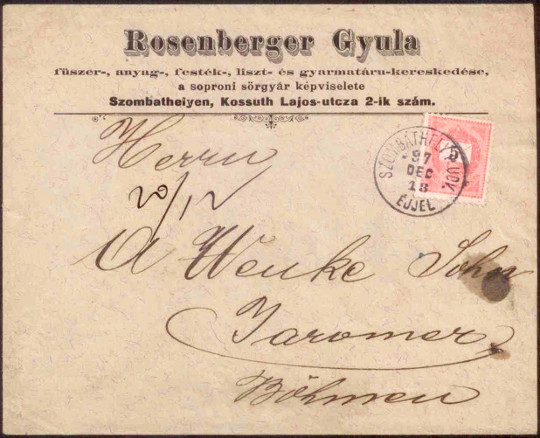 Rosenberger Gyula
füszer-, anyag-, festék-, liszt- és gyarmatáru-kereskedése,
a soproni sörgyár képviselete
Szombathelyen, Kossuth Lajos-utcza 2-ik szám.
Herrn
20/12
A Wenke Sohn
Jaromer
Böhmen
SZOMBATHELY
97
DEC
18
ÉJJEL
5